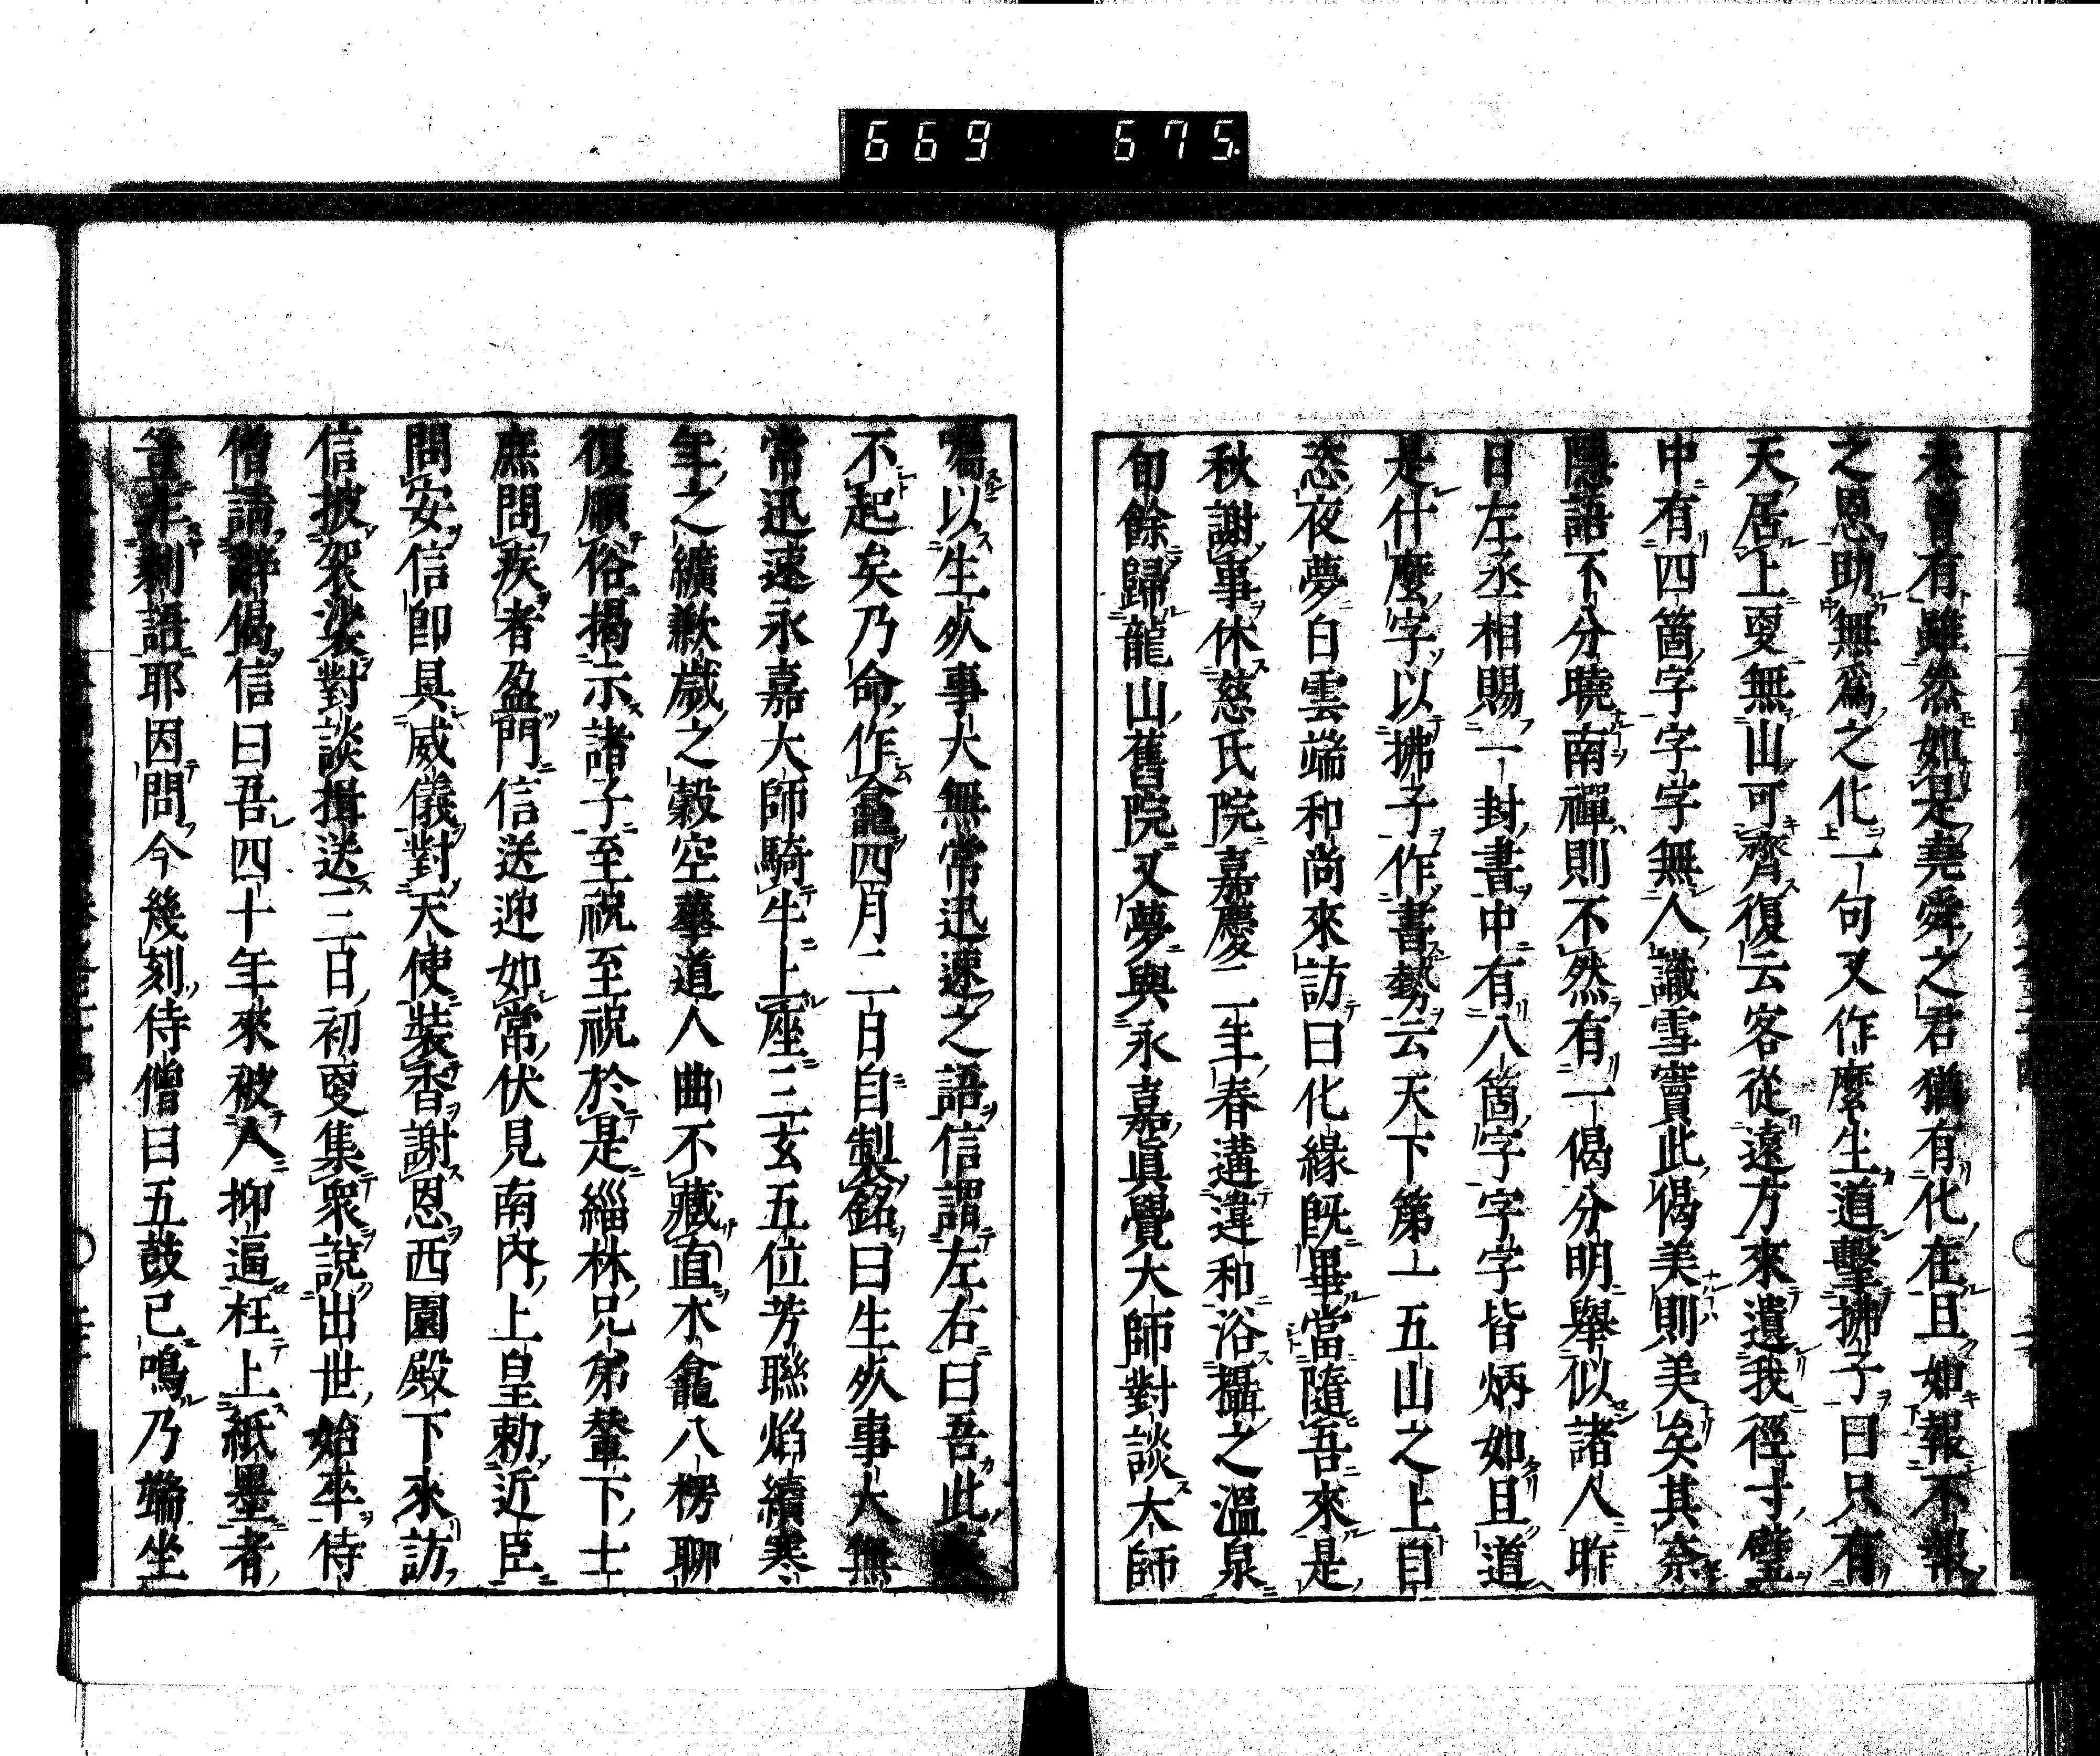 669 675
未曾有雖然如是堯舜之君猶有化在且如報不報
之恩助無爲之化一句又作麼生道擊拂子曰只有
天居上更無山可齊復云客從遠方來遺我徑寸璧
中有四箇字字字無人識雪竇此偈美則美矣其奈
隱語不分曉南禪則不然有一偈分明舉似諸人昨
日左丞相賜一封書中有八箇字字字皆炳如且道
是什麼字以拂子作書勢云天下第一五山之上自
恣夜夢白雲端和尚來訪曰化緣既畢當隨吾來是
秋謝事休慈氏院嘉慶二年春遘違和浴攝之溫泉
旬餘歸龍山舊院又夢與永嘉眞覺大師對談大師
囑以生死事大無常迅速之語信謂左右曰吾此
不起矣乃命作龕四月二日自製銘曰生死事大無
常迅速永嘉大師騎牛上座三玄五位芳聯焰續寒
年之纊歉歲之穀空華道人曲不藏直木龕八楞聊
復順俗揭示諸子至祝至祝於是緇林兄弟輦下士
庶問疾者盈門信送迎如常伏見南內上皇勅近臣
問安信卽具威儀對天使裝香謝恩西園殿下來訪
信披袈裟對談揖送三日初更集衆說出世始卒侍
僧請辭偈信曰吾四十年來被人抑逼枉上紙墨者
豈非剩語耶因問今幾刻侍僧曰五鼓已鳴乃端坐